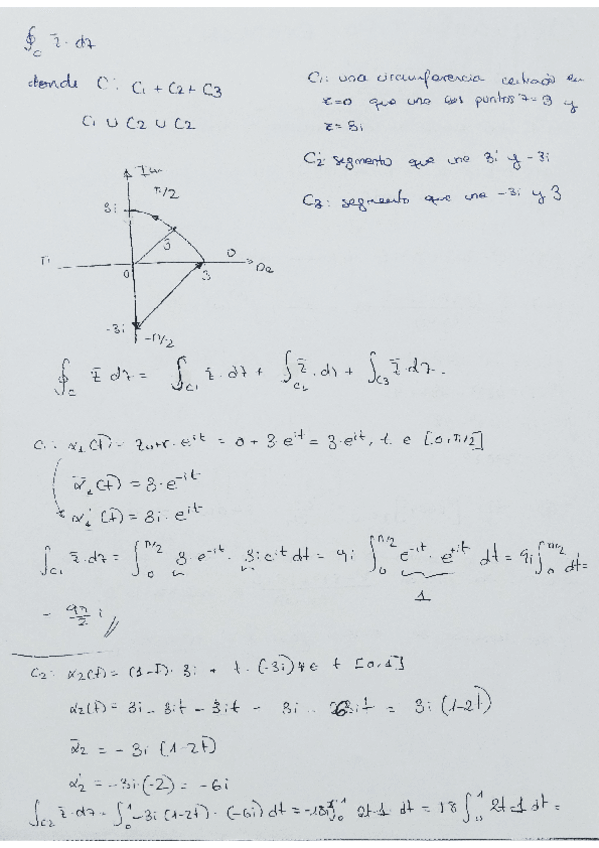 ∮_C z̄·dz
donde C: C1 + C2 + C3
C1 ∪ C2 ∪ C2
C1: una circunferencia centrada en
z=0 que une los puntos z=3 y
z=3i
C2: segmento que une 3i y -3i
C3: segmento que une -3i y 3
Im
π/2
3i
3
π 0 3 0 Re
-3i -π/2
∮_C z̄ dz = ∫_C1 z̄·dz + ∫_C2 z̄·dz + ∫_C3 z̄·dz.
C1: α1(t) = z0+r·e^it = 0 + 3·e^it = 3·e^it, t ∈ [0,π/2]
ᾱ1(t) = 3·e^-it
α1'(t) = 3i·e^it
∫_C1 z̄·dz = ∫_0^π/2 3·e^-it · 3i e^it dt = 9i ∫_0^π/2 e^-it · e^+it dt = 9i ∫_0^π/2 dt =
1
= 9π/2 i //
C2: α2(t) = (1-t)·3i + t·(-3i) t [0,1]
α2(t) = 3i - 3it - 3it = 3i - 6it = 3i(1-2t)
ᾱ2 = -3i(1-2t)
α2' = -3i·(-2) = -6i
∫_C2 z̄·dz = ∫_0^1 -3i(1-2t)·(-6i) dt = -18 ∫_0^1 2t-1 dt = 18 ∫_0^1 2t-1 dt =